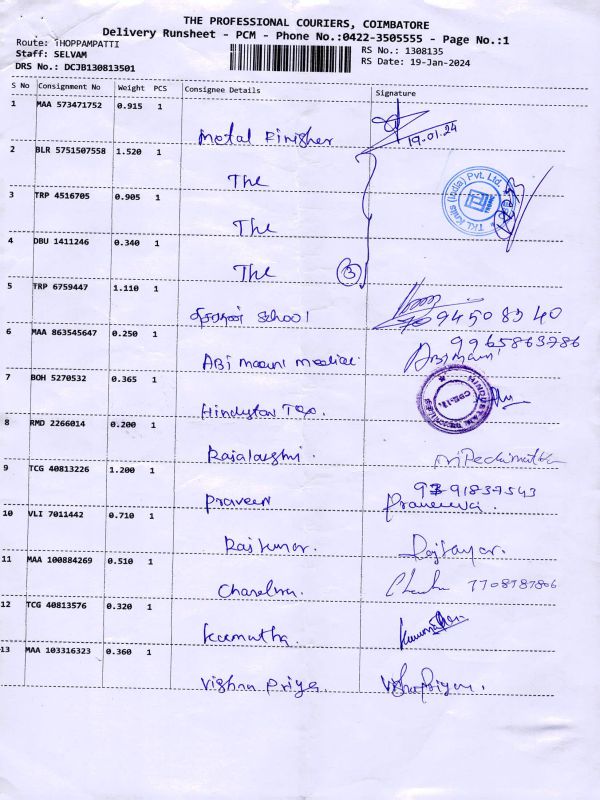 THE PROFESSIONAL COURIERS, COIMBATORE
Delivery Runsheet - PCM - Phone No.:0422-3505555 - Page No.:1
Route: THOPPAMPATTI
Staff: SELVAM
DRS No.: DCJB130813501
RS No.: 1308135
RS Date: 19-Jan-2024
S No Consignment No Weight PCS Consignee Details Signature
1 MAA 573471752 0.915 1
Metal Finisher 19.01.24
2 BLR 5751507558 1.520 1
The
TKL Knits (India) Pvt. Ltd.
3 TRP 4516705 0.905 1
The
4 DBU 1411246 0.340 1
The 3
5 TRP 6759447 1.110 1
School 94508940
6 MAA 863545647 0.250 1
9965863786
ABi mauni medical
7 BOH 5270532 0.365 1
Hindustan
8 RMD 2266014 0.200 1
Rajalaxmi.
9 TCG 40813226 1.200 1
Praveen
10 VLI 7011442 0.710 1
Rajkumar.
11 MAA 100884269 0.510 1
Chandru. 7708787806
12 TCG 40813576 0.320 1
Kumutha.
13 MAA 103316323 0.360 1
Vishnu Priya. Vishnupriya.